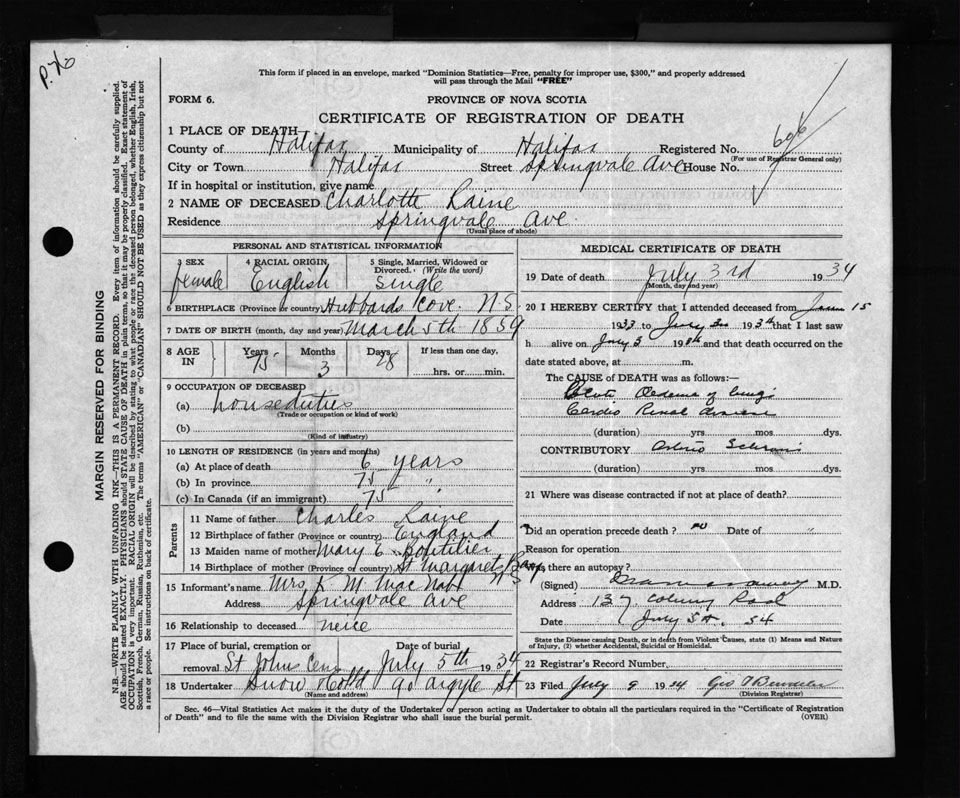 P. 76
This form if placed in an envelope, marked "Dominion Statistics—Free, penalty for improper use, $300," and properly addressed
will pass through the Mail "FREE"
FORM 6.
PROVINCE OF NOVA SCOTIA
CERTIFICATE OF REGISTRATION OF DEATH
1 PLACE OF DEATH—
County of Halifax Municipality of Halifax Registered No. 606
(For use of Registrar General only)
City or Town Halifax Street Springvale Ave (House No.
If in hospital or institution, give name
2 NAME OF DECEASED Charlotte Raine
Residence Springvale Ave.
(Usual place of abode)
PERSONAL AND STATISTICAL INFORMATION
3 SEX female
4 RACIAL ORIGIN English
5 Single, Married, Widowed or
Divorced. (Write the word)
Single
6 BIRTHPLACE (Province or country) Hubbards Cove. N.S.
7 DATE OF BIRTH (month, day and year) March 5th 1859
8 AGE IN Years 75 Months 3 Days 28
If less than one day,
hrs. or min.
9 OCCUPATION OF DECEASED
(a) houseduties
(Trade or occupation or kind of work)
(b)
(Kind of industry)
10 LENGTH OF RESIDENCE (in years and months)
(a) At place of death 6 years
(b) In province 75 "
(c) In Canada (if an immigrant) 75 "
Parents
11 Name of father Charles Raine
12 Birthplace of father (Province or country) England
13 Maiden name of mother Mary E. Boutilier
14 Birthplace of mother (Province or country) St Margarets Bay N S
15 Informant's name Mrs K. M. Mac Nab
Address Springvale Ave
16 Relationship to deceased neice
17 Place of burial, cremation or removal St Johns Cem
Date of burial July 5th 1934
18 Undertaker Snow & Co Ld 90 Argyle St
(Name and address)
MEDICAL CERTIFICATE OF DEATH
19 Date of death July 3rd 1934
(Month, day and year)
20 I HEREBY CERTIFY that I attended deceased from 15
1933 to July 3rd 1934 that I last saw
h alive on July 3 19 and that death occurred on the
date stated above, at m.
The CAUSE of DEATH was as follows:—
Oedema of lungs
Cardio Renal disease
(duration) yrs mos dys.
CONTRIBUTORY
(duration) yrs mos dys.
21 Where was disease contracted if not at place of death?
Did an operation precede death? no Date of "
Reason for operation
Was there an autopsy?
(Signed) M.D.
Address 137
Date July 5th, 34
State the Disease causing Death, or in death from Violent Causes, state (1) Means and Nature
of Injury, (2) whether Accidental, Suicidal or Homicidal.
22 Registrar's Record Number
23 Filed July 9 1934 Geo
(Division Registrar)
Sec. 46—Vital Statistics Act makes it the duty of the Undertaker or person acting as Undertaker to obtain all the particulars required in the "Certificate of Registration
of Death" and to file the same with the Division Registrar who shall issue the burial permit. (OVER)
MARGIN RESERVED FOR BINDING
N.B.—WRITE PLAINLY WITH UNFADING INK—THIS IS A PERMANENT RECORD. Every item of information should be carefully supplied.
AGE should be stated EXACTLY. PHYSICIANS should STATE CAUSE OF DEATH in plain terms, so that it may be properly classified. Exact statement of
OCCUPATION is very important. RACIAL ORIGIN will be described by stating to what people or race the deceased person belonged, whether English, Irish,
Scottish, French, German, Russian, Ruthenian, etc. The terms "AMERICAN" or "CANADIAN" SHOULD NOT BE USED as they express citizenship but not
a race or people. See instructions on back of certificate.